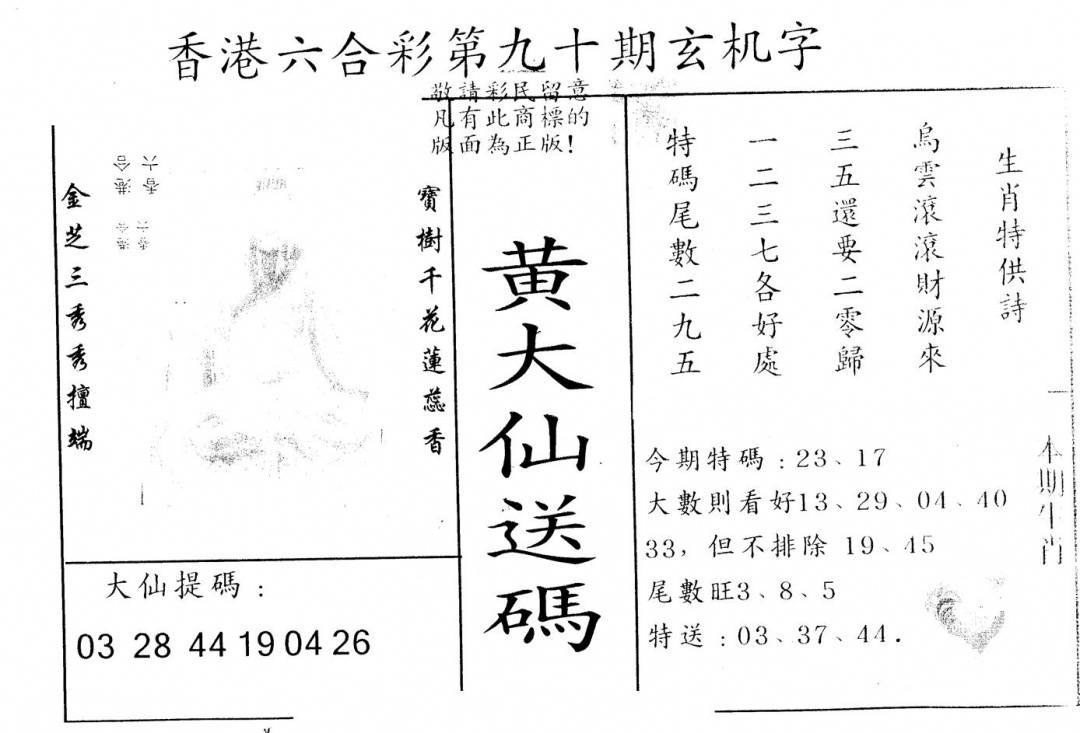 香港六合彩第九十期玄机字
敬請彩民留意
凡有此商標的
版面為正版!
生肖特供詩
烏雲滾滾財源來
三五還要二零歸
一二三七各好處
特碼尾數二九五
黄大仙送碼
寶樹千花蓮蕊香
金芝三秀秀擅端
香港
六合
香港
六合
大仙提碼:
03 28 44 19 04 26
今期特碼:23、17
大數則看好13、29、04、40
33,但不排除 19、45
尾數旺3、8、5
特送:03、37、44.
本期生肖